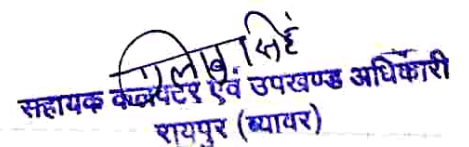 सिंह
सहायक कलक्टर एवं उपखण्ड अधिकारी
रायपुर (ब्यावर)